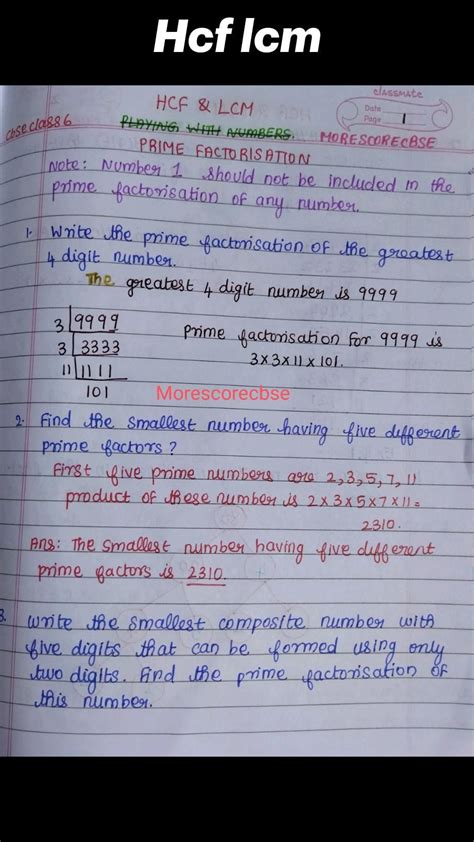 Hcf lcm
classmate
Date
Page 1
HCF & LCM
cbseclass6
PLAYING WITH NUMBERS.
MORESCORECBSE
PRIME FACTORISATION
Note: Number 1 should not be included in the
prime factorisation of any number.
1. Write the prime factorisation of the greatest
4 digit number.
The greatest 4 digit number is 9999
3 9999
3 3333
11 1111
101
Prime factorisation for 9999 is
3x3x11x101.
Morescorecbse
2. Find the smallest number having five different
prime factors?
First five prime numbers are 2,3,5,7,11
product of these number is 2x3x5x7x11=
2310.
Ans: The smallest number having five different
prime factors is 2310.
3. Write the smallest composite number with
five digits that can be formed using only
two digits. Find the prime factorisation of
this number.